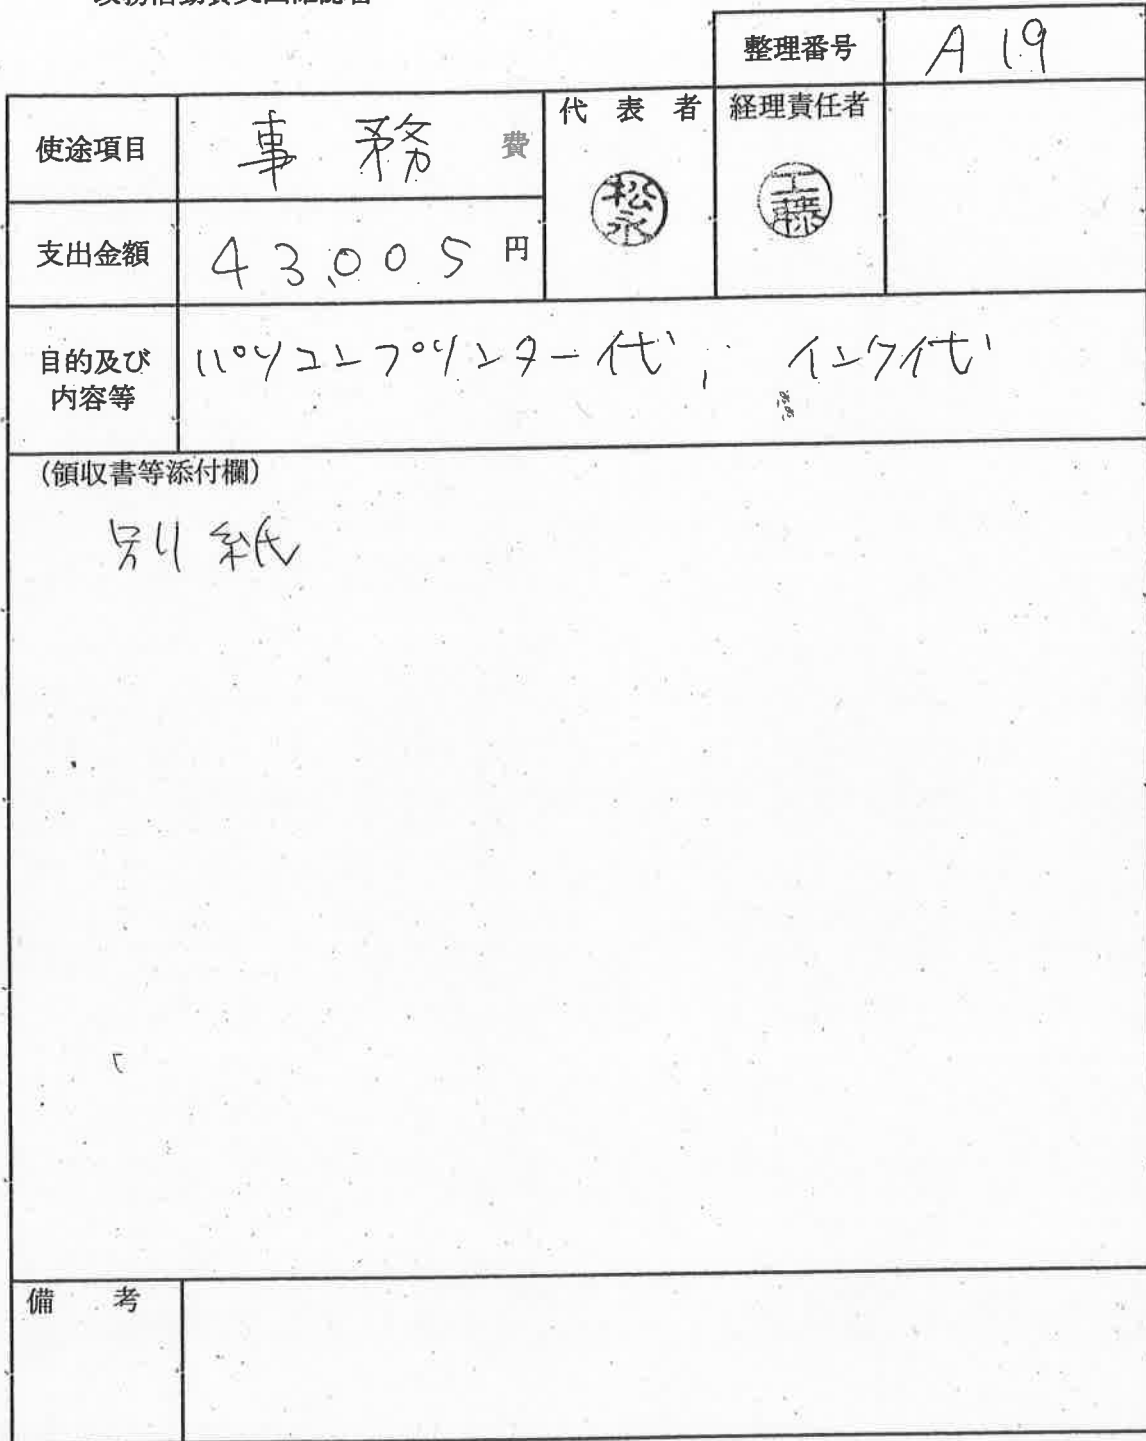 整理番号 A19
使途項目 事務費
代表者 松永
経理責任者 工藤
支出金額 43,005円
目的及び内容等 パソコンプリンター代, インク代
(領収書等添付欄)
別紙
備考